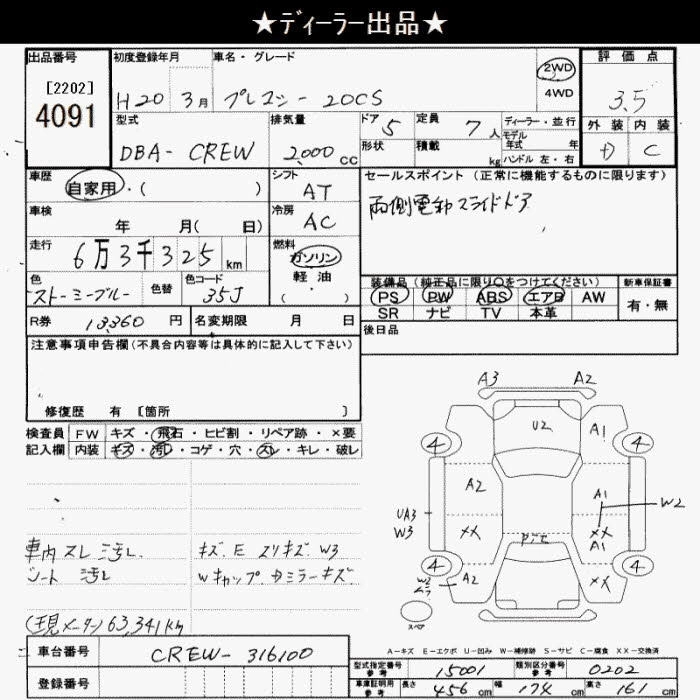 ★ディーラー出品★
出品番号
[2202]
4091
初度登録年月
H20 3月
車名・グレード
プレマシー 20CS
2WD
4WD
評価点
3.5
外装 内装
C
型式
DBA- CREW
排気量
2,000 cc
ドア 5
形状
定員 7 人
積載 kg
ディーラー・並行
モデル
年式 年
ハンドル 左・右
車歴
自家用・( )
シフト
AT
セールスポイント(正常に機能するものに限ります)
両側電動スライドドア
車検
年 月( 日)
冷房
AC
走行
6万3千325 km
燃料
ガソリン
軽・油
( ・ )
色
ストーミーブルー
色替
色コード
35J
装備品(純正品に限り○をつけてください)
PS PW ABS エアB AW
SR ナビ TV 本革
新車保証書
有・無
R券 13,360 円
名変期限 月 日
後日品
注意事項申告欄(不具合内容等は具体的に記入して下さい)
修復歴 有 [箇所 ]
検査員
記入欄
FW キズ・飛石・ヒビ割・リペア跡・×要
内装 キズ・汚レ・コゲ・穴・スレ・キレ・破レ
車内 スレ 汚レ
シート 汚レ
キズ E スリキズ W3
Wキャップ
ミラーキズ
(現メーター) 63,341km
A3 A2
U2
A1
4 4
A2
A1
W2
UA3
W3
XX
XX
A1
ピット
4 4
W2
A2
XX
スペア
A-キズ E-エクボ U-凹み W-補修跡 S-サビ C-腐食 XX-交換済
車台番号
CREW- 316100
登録番号
型式指定番号
参考
15001
類別区分番号
参考
0202
車庫証明用
参考
長さ 456 cm
幅 174 cm
高さ 161 cm